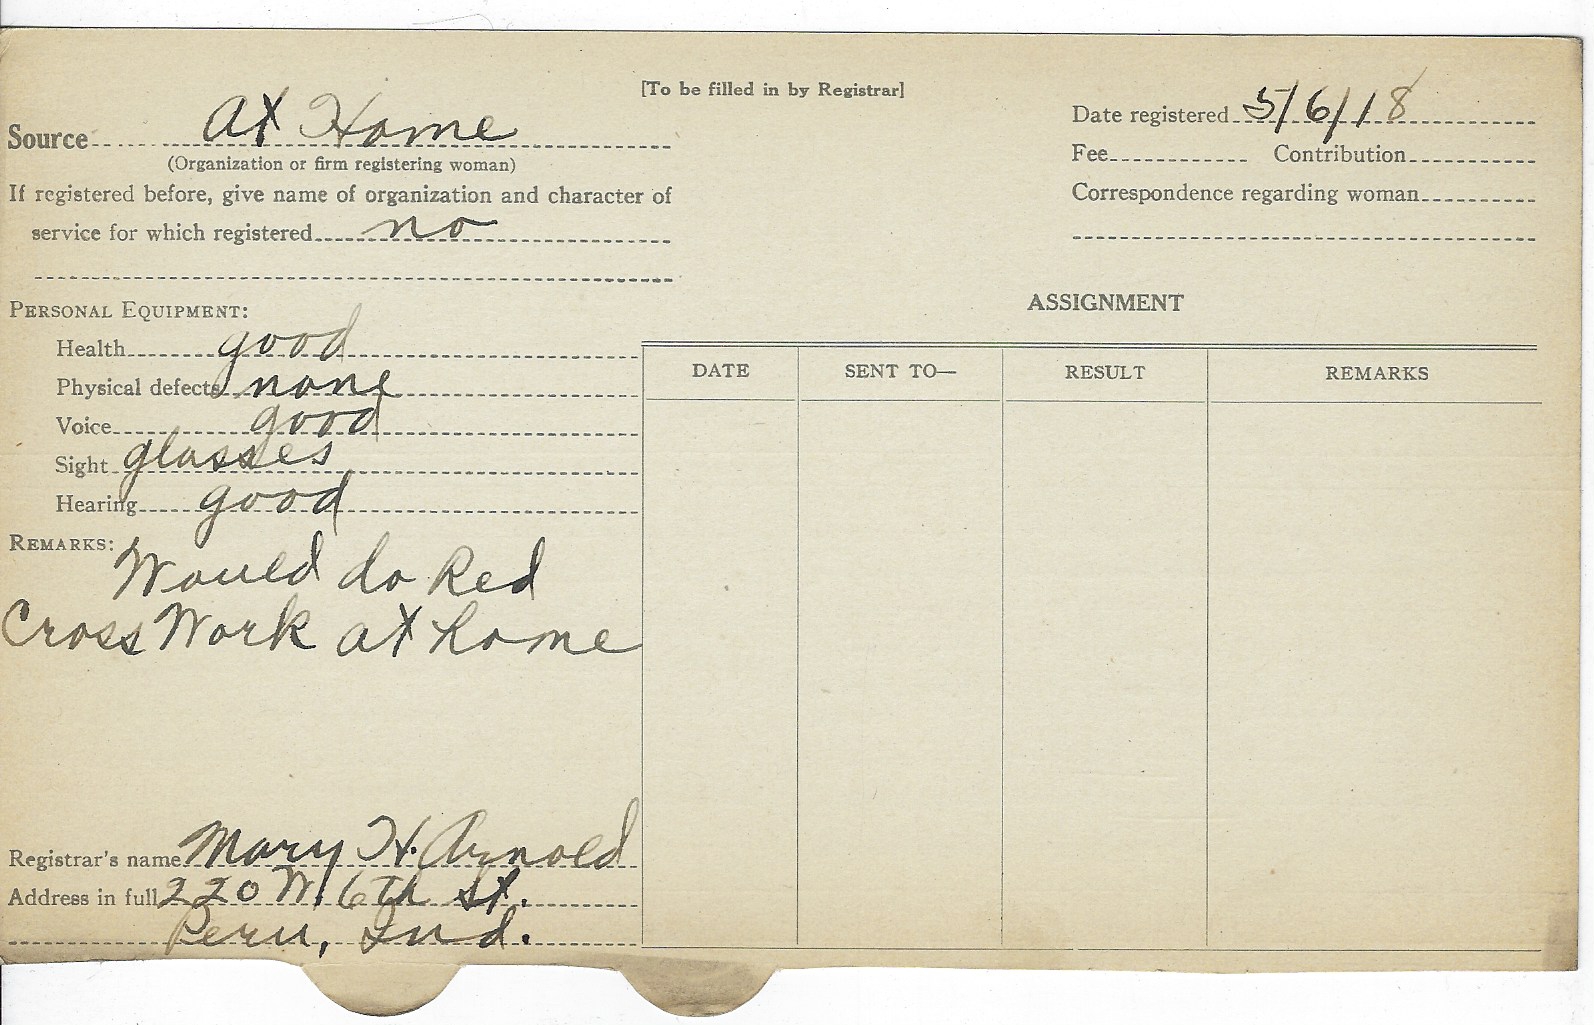 [To be filled in by Registrar]
Source At Home
(Organization or firm registering woman)
If registered before, give name of organization and character of
service for which registered no
Date registered 5/6/18
Fee Contribution
Correspondence regarding woman
PERSONAL EQUIPMENT:
Health good
Physical defects none
Voice good
Sight glasses
Hearing good
REMARKS:
Would do Red
Cross Work at home
Registrar's name Mary H. Arnold
Address in full 220 W. 6th St.
Peru, Ind.
ASSIGNMENT
DATE SENT TO— RESULT REMARKS